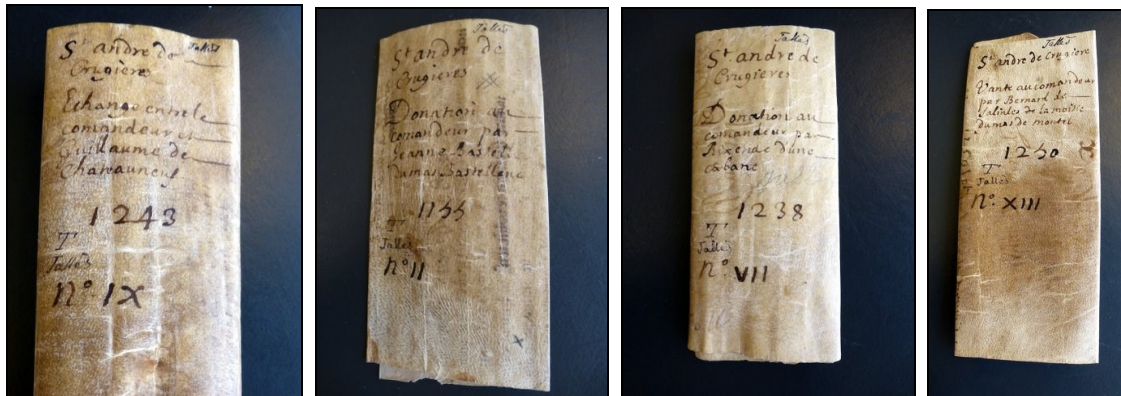 Jallés
St andre de
Crugieres
Echange entre le
comandeur et
Guillaume de
Chateauneuf
1243
T
Jallés
n.o IX
Jallés
St andre de
Crugieres
Donation au
comandeur par
Jeanne Bastet
dumas Bastellenc
1155
T
Jallés
n.o II
Jallés
St andre de
Crugieres
Donation au
comandeur par
dune
cabane
1238
T
Jallés
n.o VII
Jallés
St andre de Crugiere
Vante au comandeur
par Bernard de
Salinles de la moitié
dumas de montel
1250
T
Jallés
n.o XIII